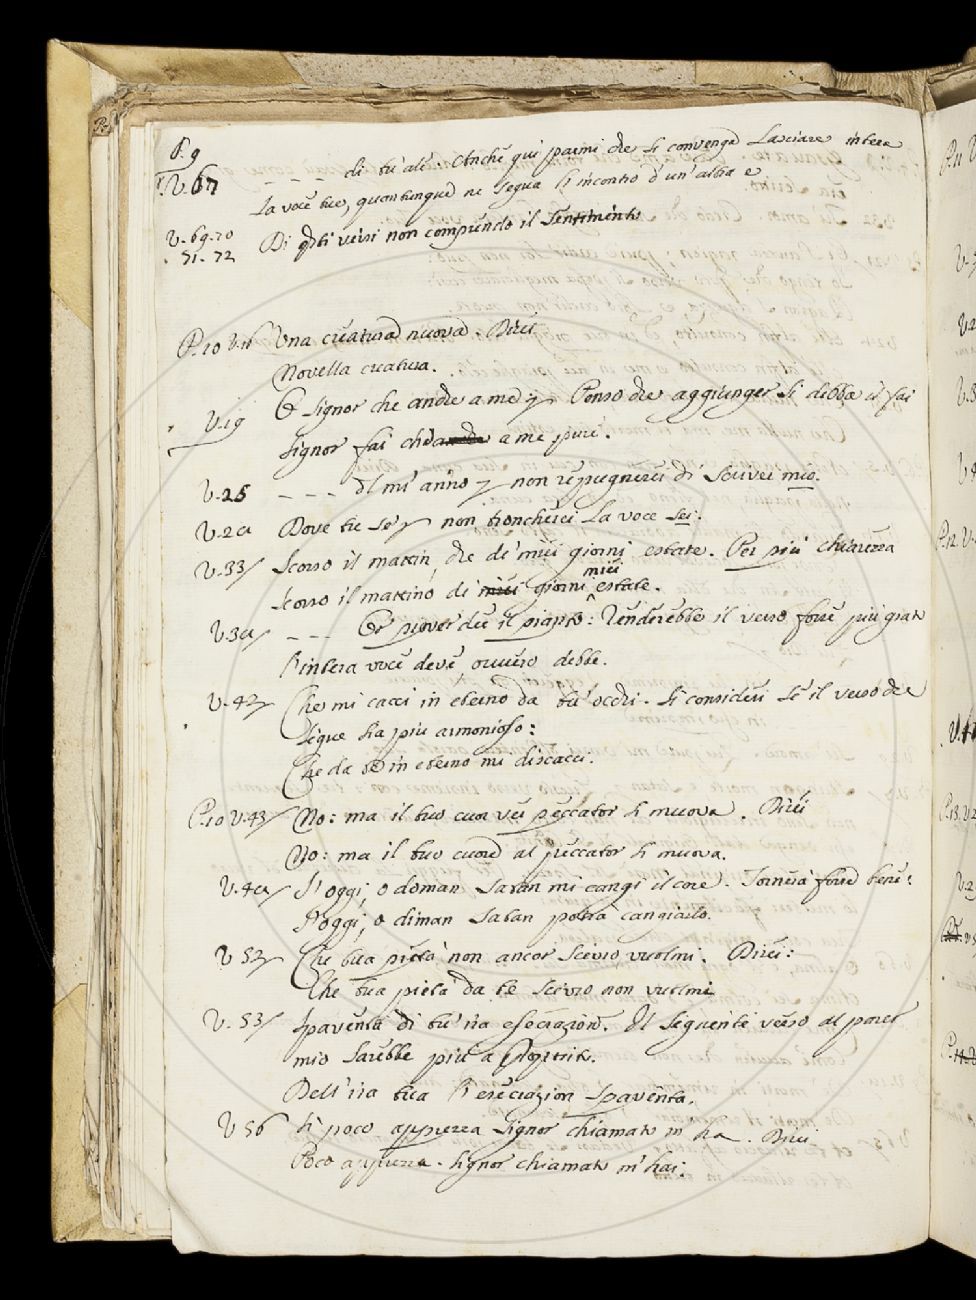 P. 9
V. 67 - - - - di tu' ale. Anche qui parmi che si convenga Lasciare intera
La voce tue, quantunque ne segua l'incontro d'un'altra e
V. 69. 70 Di q.sti versi non comprendo il Sentimento
71. 72
P. 10 V. 16 Una creatura nuova. Direi
Novella creatura.
V. 19 E Signor che anche a me Penso che aggiunger si debba il fai
Signor fai che a me pure.
V. 25 - - - - al mi' anno non repugnerei di Scriver mio.
V. 29 Dove tu se' non troncherei La voce sei.
V. 33 Scorso il mattin, che de' miei giorni estate. Per più chiarezza
Scorso il mattino de' miei giorni miei estate.
V. 39 - - - E piover dee il pianto: Renderebbe il verso forse più grato
l'intera voce deve ovvero debbe.
V. 42 Che mi cacci in eterno da tu' occhi. Si consideri se il verso che
Segue sia più armonioso:
Che da te in eterno mi discacci.
P. 10 V. 43 No: ma il tuo cuor ver peccator si muova. Direi
No: ma il tuo cuore al peccator si muova.
V. 49 S'oggi, o doman Satan mi cangi il core. Tornerìa forse bene:
S'oggi, o diman Satan potrà cangiarlo.
V 52 Che tua pietà non ancor scevro vuolmi. Direi:
Che tua pietà da te scevro non vuolmi
V. 53 Spaventa di tu' ira esecrazione. Il Seguente verso al parer
mio Sarebbe più a Proposito.
Dell'ira tua l'esecrazion Spaventa.
V 56 Li poco apprezza Signor chiamato m'ha. Direi
Poco apprezza. Signor chiamato m'hai: